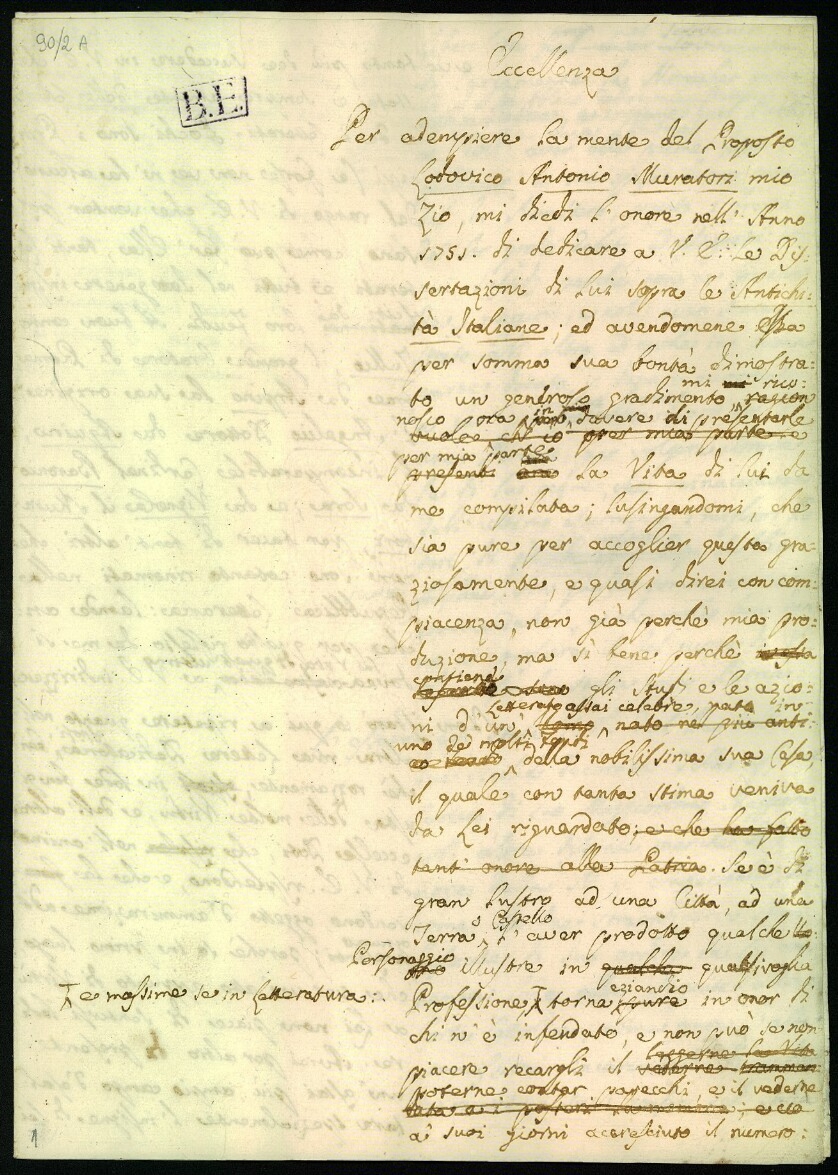 90/2 A
B.E.
Eccellenza
Per adempiere la mente del Proposto
Lodovico Antonio Muratori mio
Zio, mi diedi l'onore nell'Anno
1751. di dedicare a V. E. le Dis-
sertazioni di lui sopra le Antichi-
tà Italiane; ed avendomene Essa
per somma sua bontà dimostra-
to un generoso gradimento, mi rico-
nosco ora in dovere di presentarle
per mia parte
presenti la Vita di lui da
me compilata; lusingandomi, che
sia pure per accoglier questa gra-
ziosamente, e quasi direi con com-
piacenza, non già perchè mia pro-
duzione, ma sì bene perchè
contiene gli Studj e le azio-
ni d'un Letterato assai celebre, nato in
uno de' molti feudi della nobilissima sua Casa,
il quale con tanta stima veniva
da Lei riguardato; e che ha fatto
tant' onore alla Patria. Se è di
gran lustro ad una Città, ad una
Terra, o Castello l'aver prodotto qualche
Personaggio illustre in qualche qualsivoglia
e massime se in Letteratura:
Professione, torna eziandio pure in onor di
chi n'è infeudato, e non può se non
piacere recargli il vederne leggerne la Vita
poterne contar parecchi, e il vederne
a' suoi giorni accresciuto il numero:
1